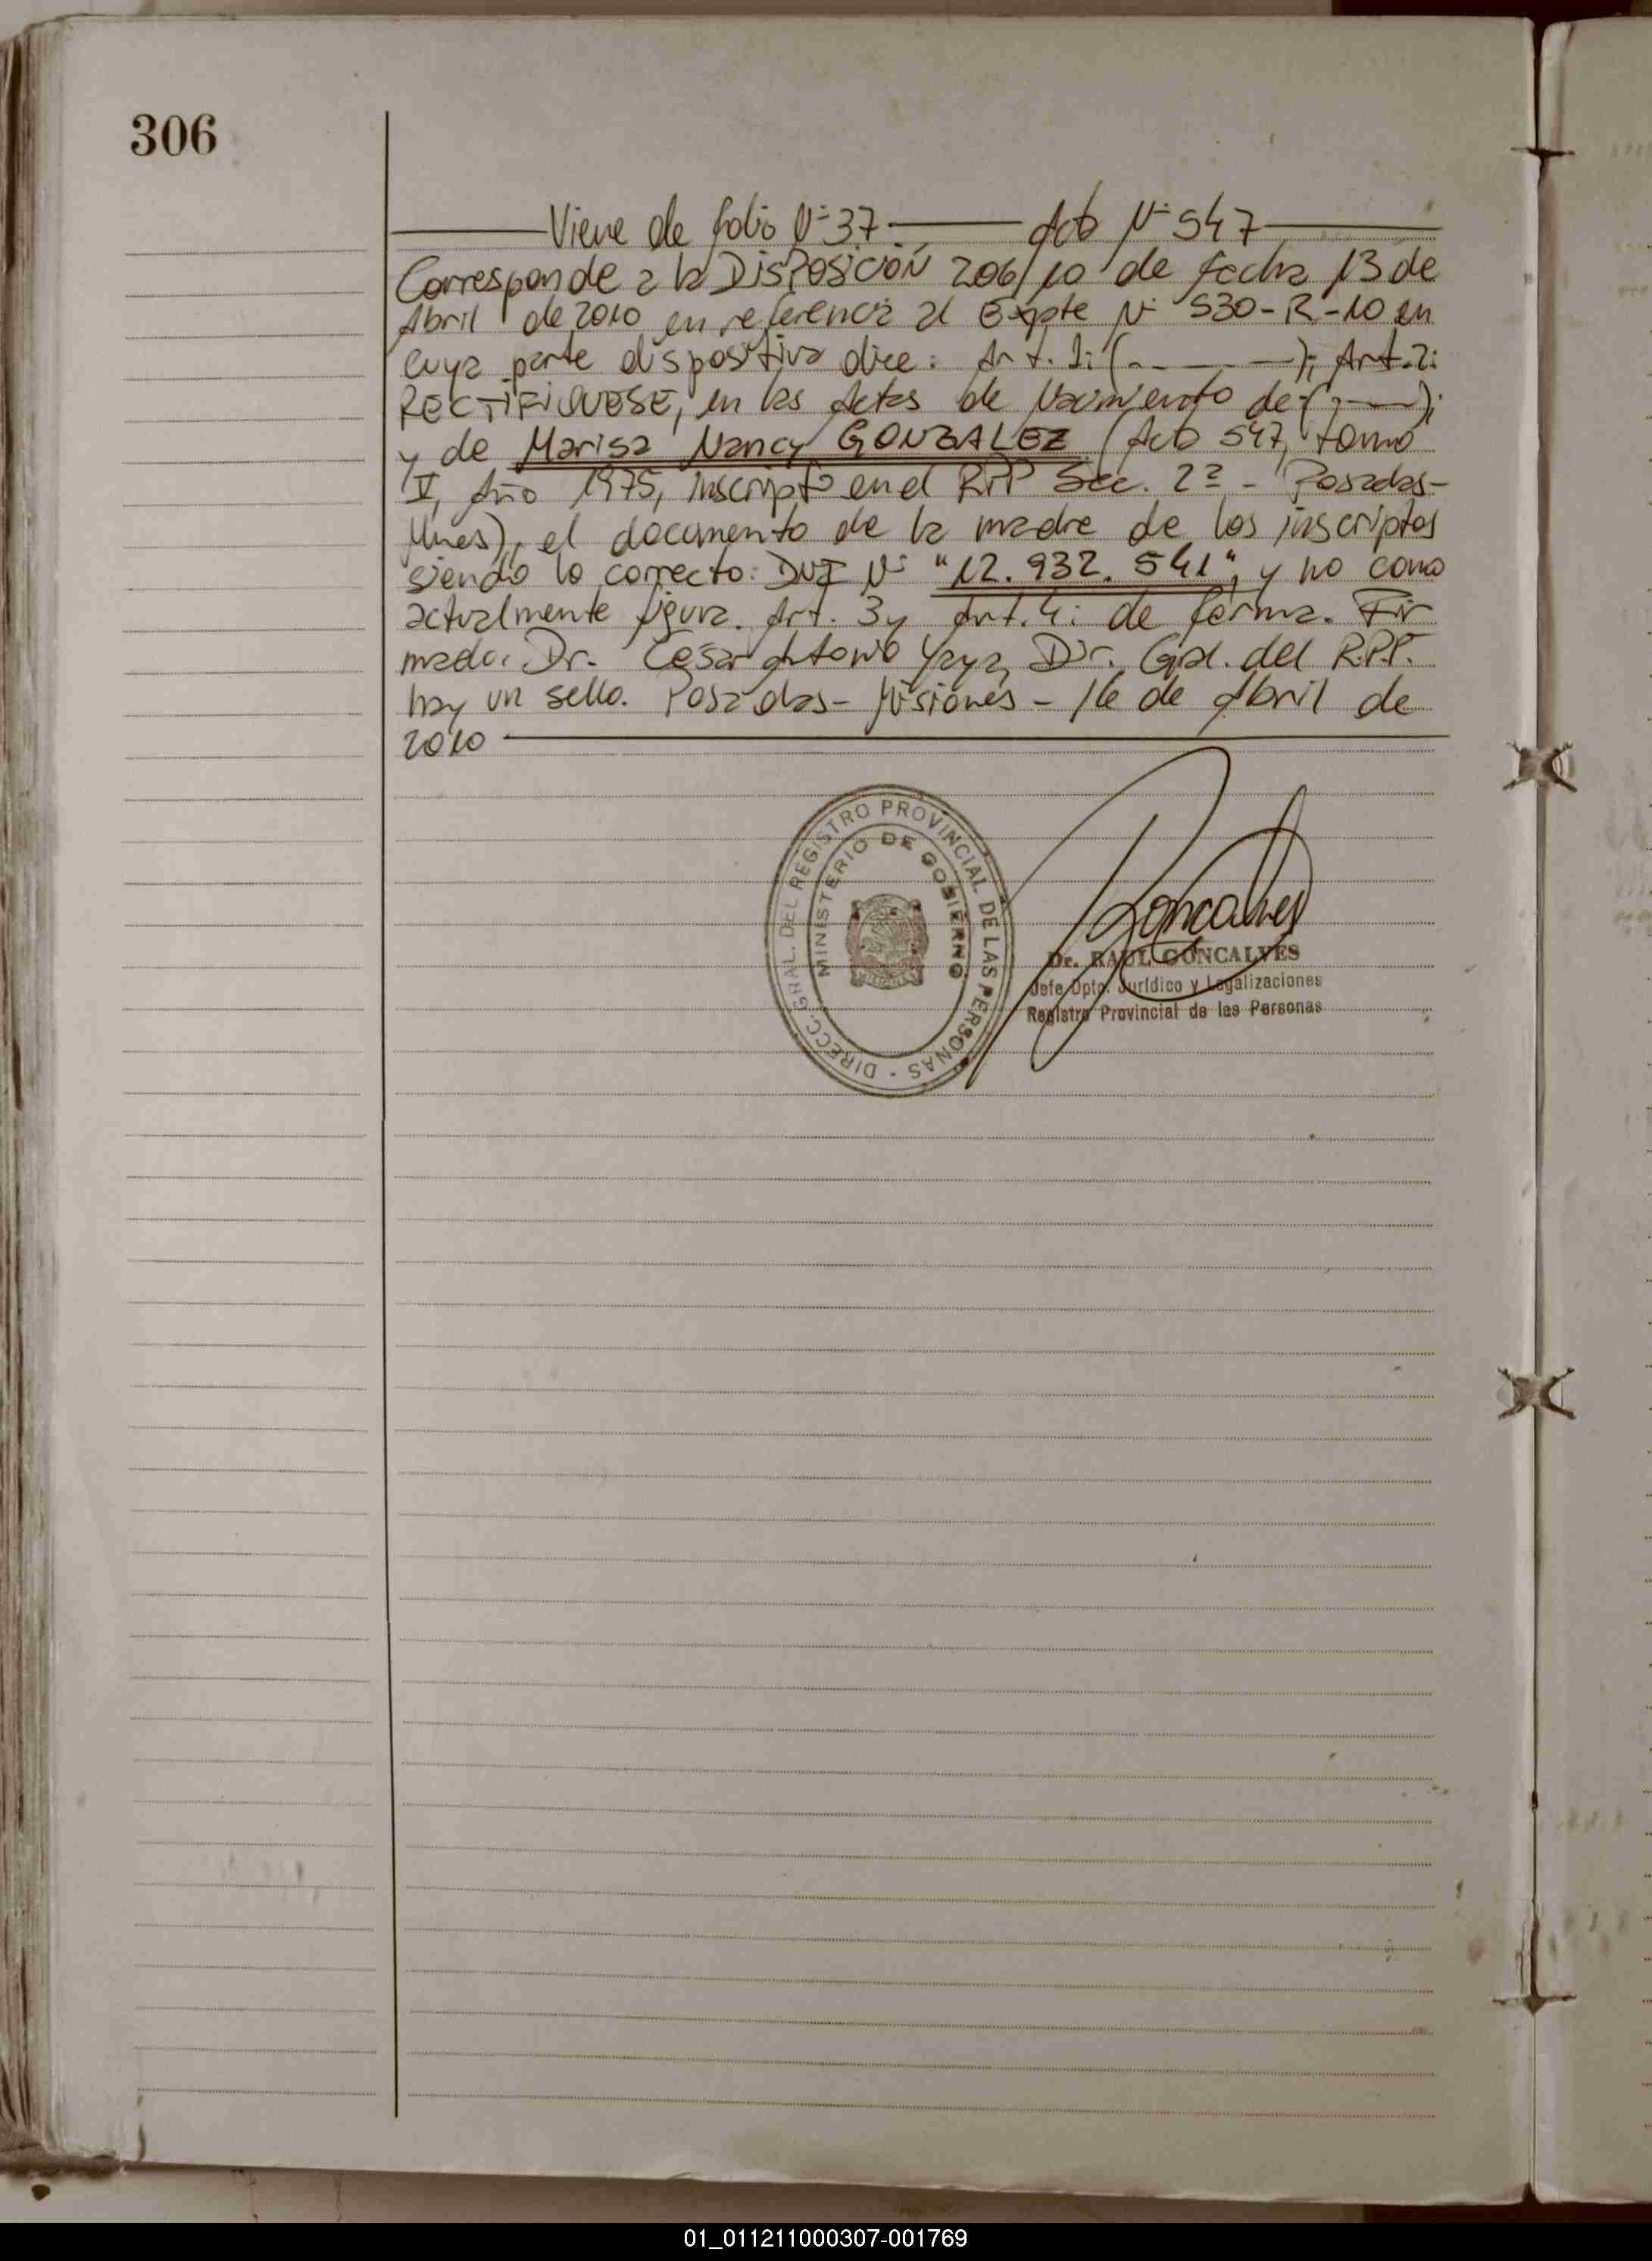 306
Viene de folio N° 37 Acta N° 547
Corresponde a la DISPOSICIÓN 206/10 de fecha 13 de
Abril de 2010 en referencia al Expte N° 530-R-10 en
cuya parte dispositiva dice: Art. 1: (-------); Art. 2:
RECTIFIQUESE, en las Actas de Nacimiento de (----);
y de Marisa Nancy GONZALEZ (Acta 547, tomo
V, Año 1975, inscripto en el RPP Sec. 2ª - Posadas-
Mnes), el documento de la madre de los inscriptos
siendo lo correcto: DNI N° "12.932.541", y no como
actualmente figura. Art. 3 y Art. 4: de forma. Fir
mado. Dr. Cesar Antonio Yaya, Dir. Gral. del R.P.P.
hay un sello. Posadas - Misiones - 16 de Abril de
2010
DIRECC. GRAL. DEL REGISTRO PROVINCIAL DE LAS PERSONAS -
MINISTERIO DE GOBIERNO
Goncalves
Dr. RAUL GONCALVES
Jefe Dpto. Jurídico y Legalizaciones
Registro Provincial de las Personas
01_011211000307-001769